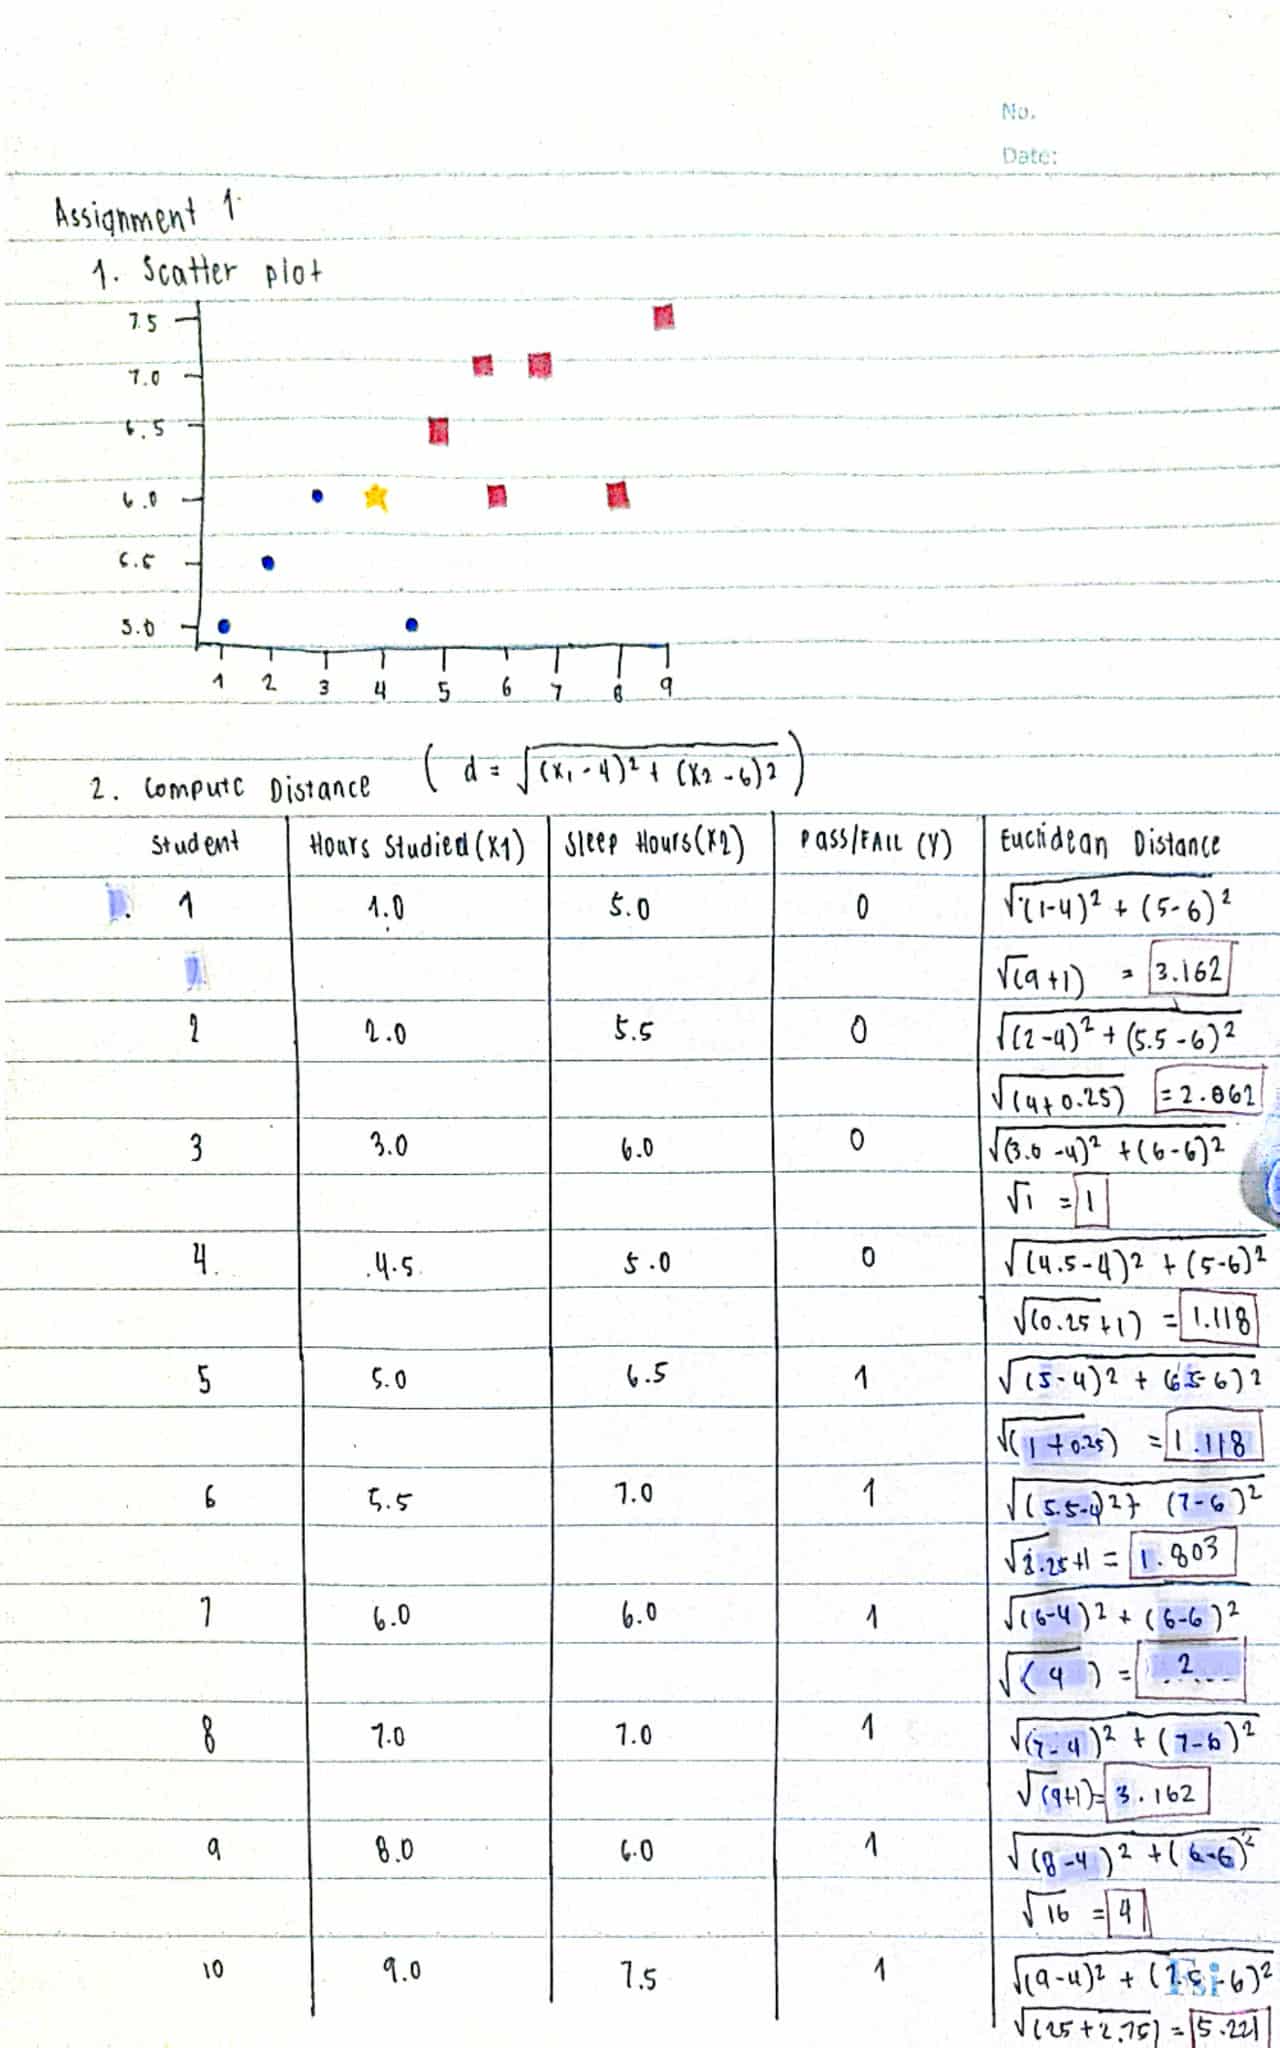 No.
Date:
Assignment 1
1. Scatter plot
7.5
7.0
6.5
6.0
5.0
1 2 3 4 5 6 7 8 9
2. Compute Distance ( d = √(x1 - 4)² + (x2 - 6)² )
Student Hours Studied (X1) Sleep Hours (X2) PASS/FAIL (Y) Euclidean Distance
1 1.0 5.0 0 √(1-4)² + (5-6)²
√(9+1) = 3.162
2 2.0 5.5 0 √(2-4)² + (5.5-6)²
√(4+0.25) = 2.062
3 3.0 6.0 0 √(3.0-4)² + (6-6)²
√1 = 1
4 4.5 5.0 0 √(4.5-4)² + (5-6)²
√(0.25+1) = 1.118
5 5.0 6.5 1 √(5-4)² + (6.5-6)²
√(1+0.25) = 1.118
6 5.5 7.0 1 √(5.5-4)² + (7-6)²
√2.25+1 = 1.803
7 6.0 6.0 1 √(6-4)² + (6-6)²
√(4) = 2
8 7.0 7.0 1 √(7-4)² + (7-6)²
√(9+1) = 3.162
9 8.0 6.0 1 √(8-4)² + (6-6)²
√16 = 4
10 9.0 7.5 1 √(9-4)² + (7.5-6)²
√(25+2.75) = 5.221